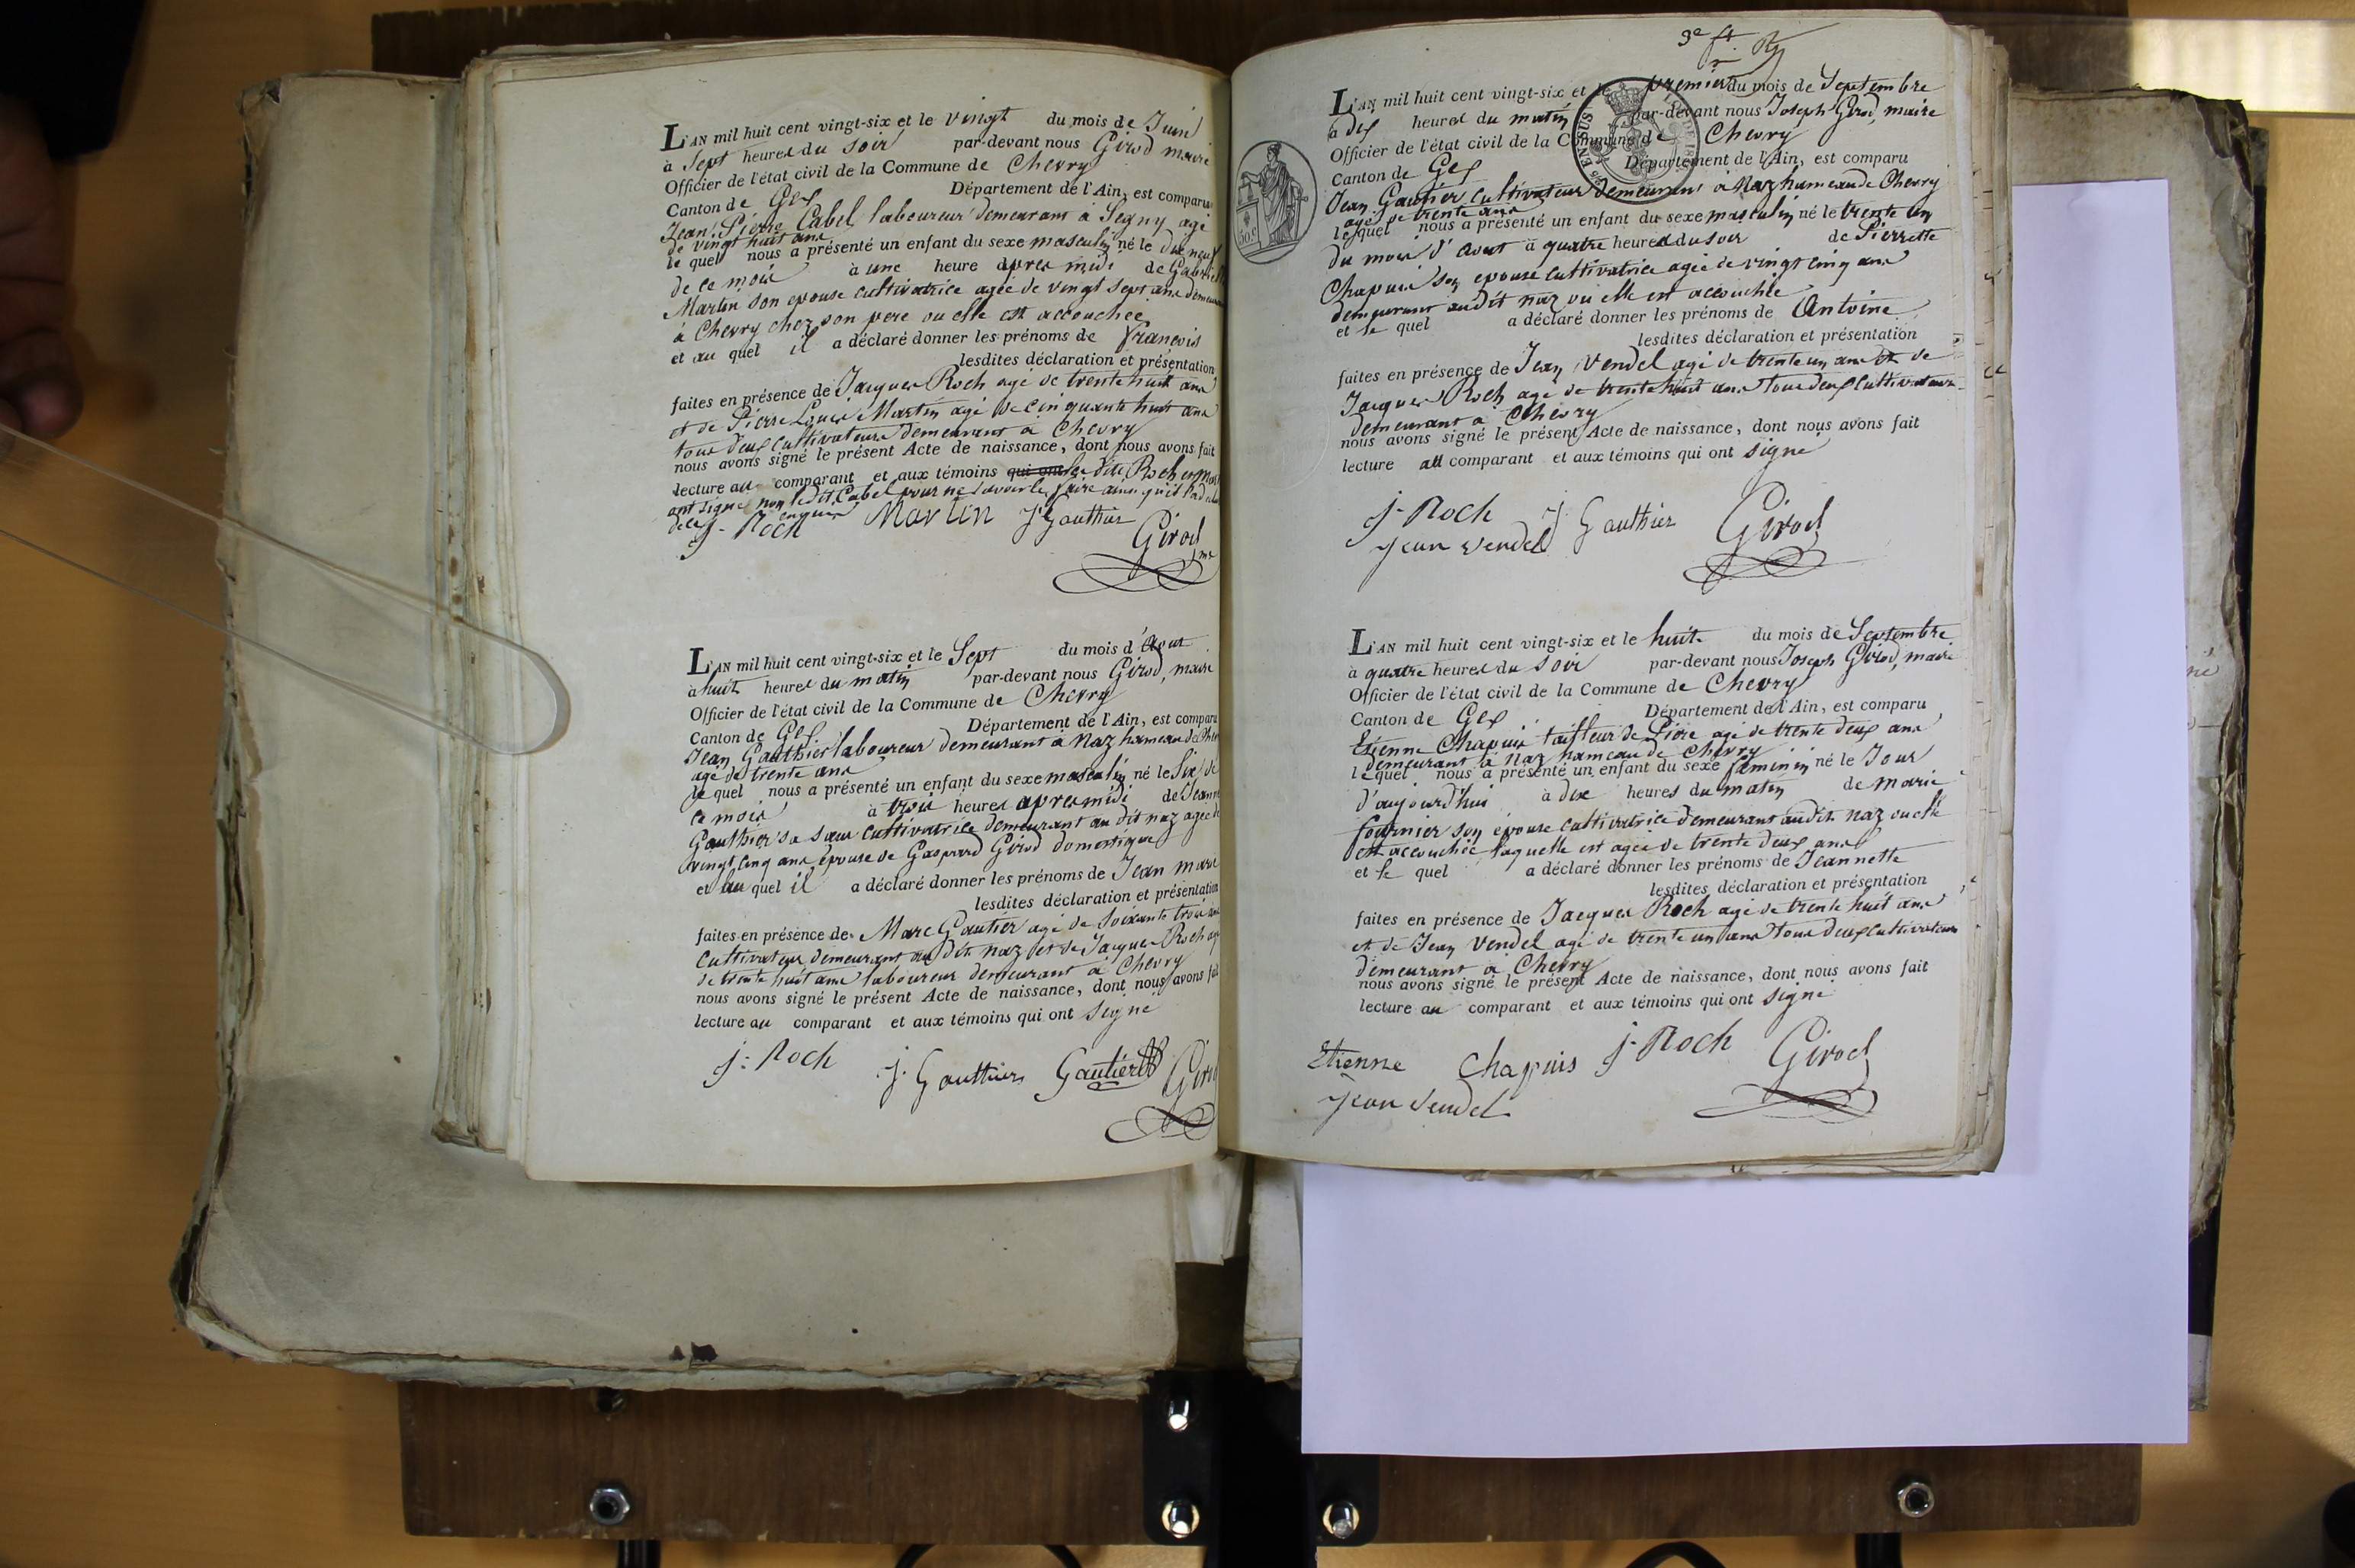 L'AN mil huit cent vingt-six et le vingt du mois de Juin
à Sept heures du soir par-devant nous Girod maire
Officier de l'état civil de la Commune de Chevry
Canton de Gex Département de l'Ain, est comparu
Jean Pierre Cabel laboureur demeurant à Segny agé
de vingt huit ans
le quel nous a présenté un enfant du sexe masculin né le dix neuf
de ce mois à une heure apres midi de
Martin son epouse cultivatrice agée de vingt sept ans
à Chevry chez son pere ou elle est accouchée
et au quel il a déclaré donner les prénoms de francois
lesdites déclaration et présentation
faites en présence de Jacques Roch agé de trente huit ans
et de Pierre Louis Martin agé de cinquante huit ans
tous deux cultivateurs demeurant à Chevry
nous avons signé le présent Acte de naissance, dont nous avons fait
lecture au comparant et aux témoins qui ont les dits Roch et
ont signé non ledit Cabel pour ne savoir le faire ainsi qu'il
enquis
J. Roch Martin J Gauthier Girod
L'AN mil huit cent vingt-six et le Sept du mois d'Aout
à huit heures du matin par-devant nous Girod, maire
Officier de l'état civil de la Commune de Chevry
Canton de Gex Département de l'Ain, est comparu
Jean Gauthier laboureur demeurant à Naz hameau de
agé de trente ans
le quel nous a présenté un enfant du sexe masculin né le Six de
ce mois à trois heures apres midi de Jeanne
Gauthier sa sœur cultivatrice demeurant au dit naz agée de
vingt cinq ans épouse de Gaspard Girod domestique
et au quel il a déclaré donner les prénoms de Jean marie
lesdites déclaration et présentation
faites en présence de Marc Gautier agé de soixante trois ans
cultivateur demeurant au dit naz et de Jacques Roch agé
de trente huit ans laboureur demeurant à Chevry
nous avons signé le présent Acte de naissance, dont nous avons fait
lecture au comparant et aux témoins qui ont signé
j: Roch j. Gauthier Gautier Girod
3e
L'AN mil huit cent vingt-six et le premier du mois de Septembre
à dix heures du matin par-devant nous Joseph Girod, maire
Officier de l'état civil de la Commune de Chevry
Canton de Gex Département de l'Ain, est comparu
Jean Gautier cultivateur demeurant à Naz hameau de Chevry
agé de trente ans
lequel nous a présenté un enfant du sexe masculin né le trente un
du mois d'Aout à quatre heures du soir de Pierrette
Chapuis son epouse cultivatrice agée de vingt cinq ans
demeurant audit naz ou elle est accouchée
et le quel a déclaré donner les prénoms de Antoine
lesdites déclaration et présentation
faites en présence de Jean Vendel agé de trente un ans et de
Jacques Roch agé de trente huit ans tous deux cultivateurs
demeurant à Chevry
nous avons signé le présent Acte de naissance, dont nous avons fait
lecture au comparant et aux témoins qui ont signé
j. Roch J. Gauthier Girod
Jean Vendel
L'AN mil huit cent vingt-six et le huit du mois de Septembre
à quatre heures du soir par-devant nous Joseph Girod, maire
Officier de l'état civil de la Commune de Chevry
Canton de Gex Département de l'Ain, est comparu
Etienne Chapuis tailleur de Piere agé de trente deux ans
demeurant à Naz hameau de Chevry
lequel nous a présenté un enfant du sexe féminin né le Jour
d'aujourd'hui à dix heures du matin de marie
fournier son épouse cultivatrice demeurant audit naz ou elle
est accouchée laquelle est agée de trente deux ans
et le quel a déclaré donner les prénoms de Jeannette
lesdites déclaration et présentation
faites en présence de Jacques Roch agé de trente huit ans
et de Jean Vendel agé de trente un ans tous deux cultivateurs
demeurant à Chevry
nous avons signé le présent Acte de naissance, dont nous avons fait
lecture au comparant et aux témoins qui ont signé
Etienne Chapuis j. Roch Girod
Jean Vendel